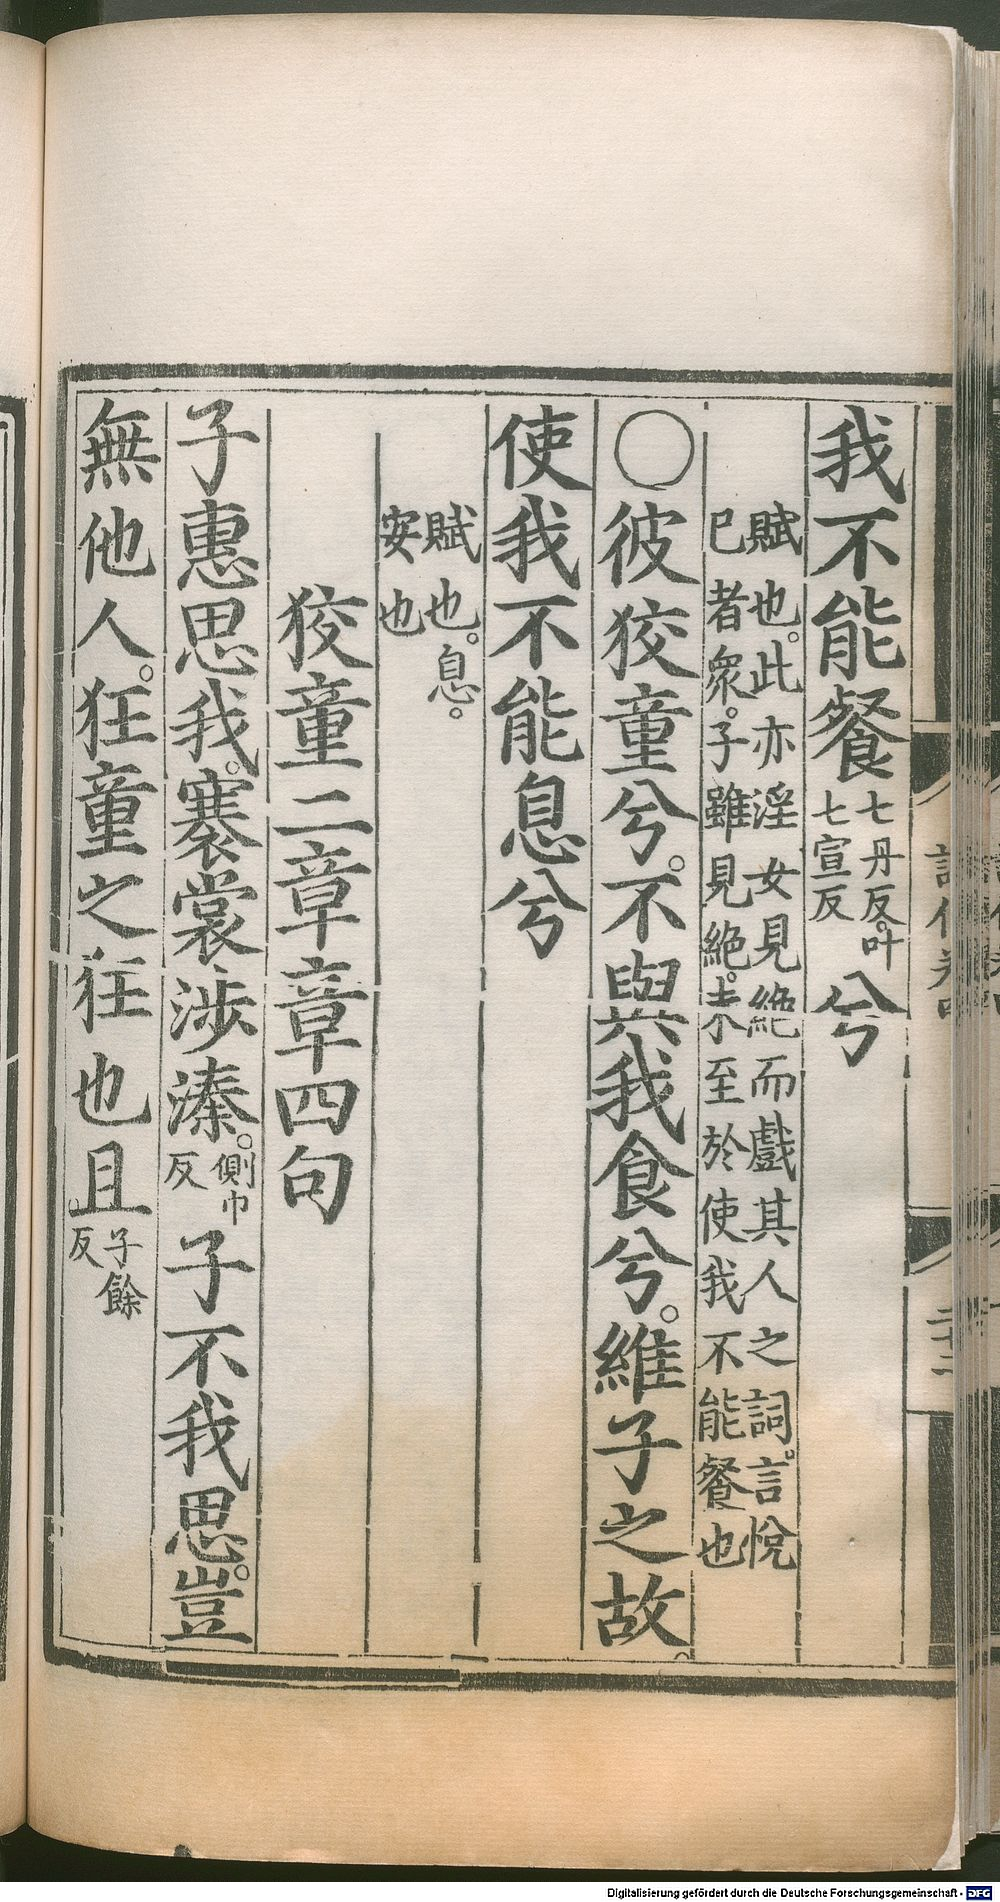 我不能餐七丹反。叶七宣反兮
賦也。此亦淫女見絶而戲其人之詞。言悅
已者衆。子雖見絶。未至於使我不能餐也
○彼狡童兮。不與我食兮。維子之故。
使我不能息兮
賦也。息。
安也
狡童二章章四句
子惠思我。褰裳涉溱。側巾反子不我思。豈
無他人。狂童之狂也且子餘反
Digitalisierung gefördert durch die Deutsche Forschungsgemeinschaft - DFG